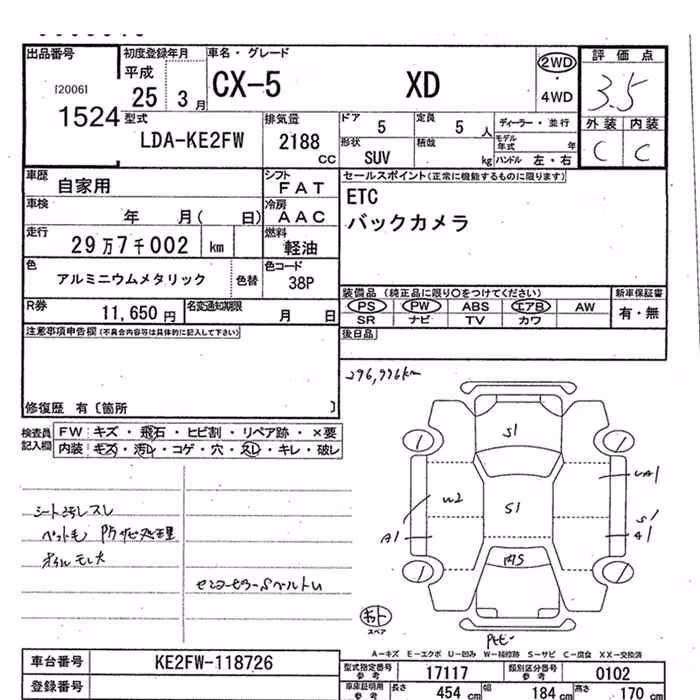 出品番号
[2006]
1524
初度登録年月
平成
25 3月
車名・グレード
CX-5 XD
2WD
・
4WD
評価点
3.5
外装 内装
C C
型式
LDA-KE2FW
排気量
2188
CC
ドア
5
定員
5 人
ディーラー・並行
形状
SUV
積載
kg
モデル年式 年
ハンドル 左・右
車歴
自家用
シフト
FAT
車検
年 月( 日)
冷房
AAC
走行
29万7千002 km
燃料
軽油
色
アルミニウムメタリック
色替
色コード
38P
R券
11,650 円
名変通知期限
月 日
セールスポイント(正常に機能するものに限ります)
ETC
バックカメラ
装備品(純正品に限り○をつけてください)
PS PW ABS エアB AW
SR ナビ TV カワ
新車保証書
有・無
後日品
注意事項申告欄(不具合内容等は具体的に記入して下さい)
修復歴 有〔箇所 〕
検査員記入欄
FW キズ・飛石・ヒビ割・リペア跡・×要
内装 キズ・汚レ・コゲ・穴・スレ・キレ・破レ
296,996km
シート汚レスレ
ペット毛 防サビ処理
オイルモレ大
S1
S1
W2
A1
UA1
S1
A1
キット
スペア
A-キズ E-エクボ U-凹み W-補修跡 S-サビ C-腐食 XX-交換済
車台番号
KE2FW-118726
登録番号
型式指定番号
参考
17117
類別区分番号
参考
0102
車庫証明用
参考
長さ 454 cm
幅 184 cm
高さ 170 cm